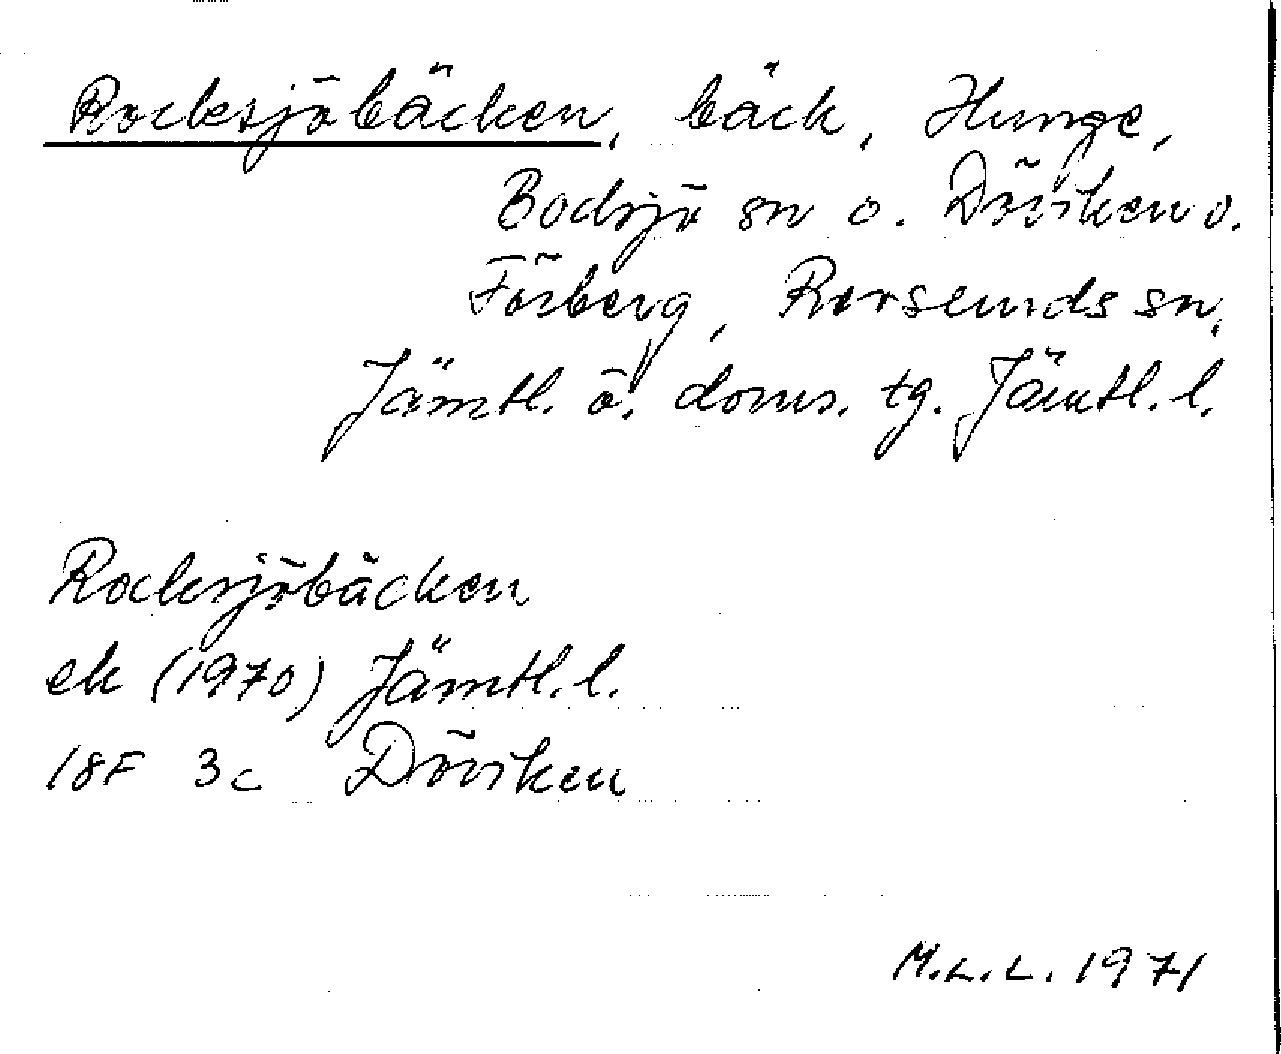 Rocksjöbäcken, bäck, Hunge,
Bodsjö sn o. Döviken o.
Förberg, Revsunds sn,
Jämtl. ö. doms. tg. Jämtl. l.
Rocksjöbäcken
ek (1970) Jämtl. l.
18F 3c Döviken
M.L.L. 1971